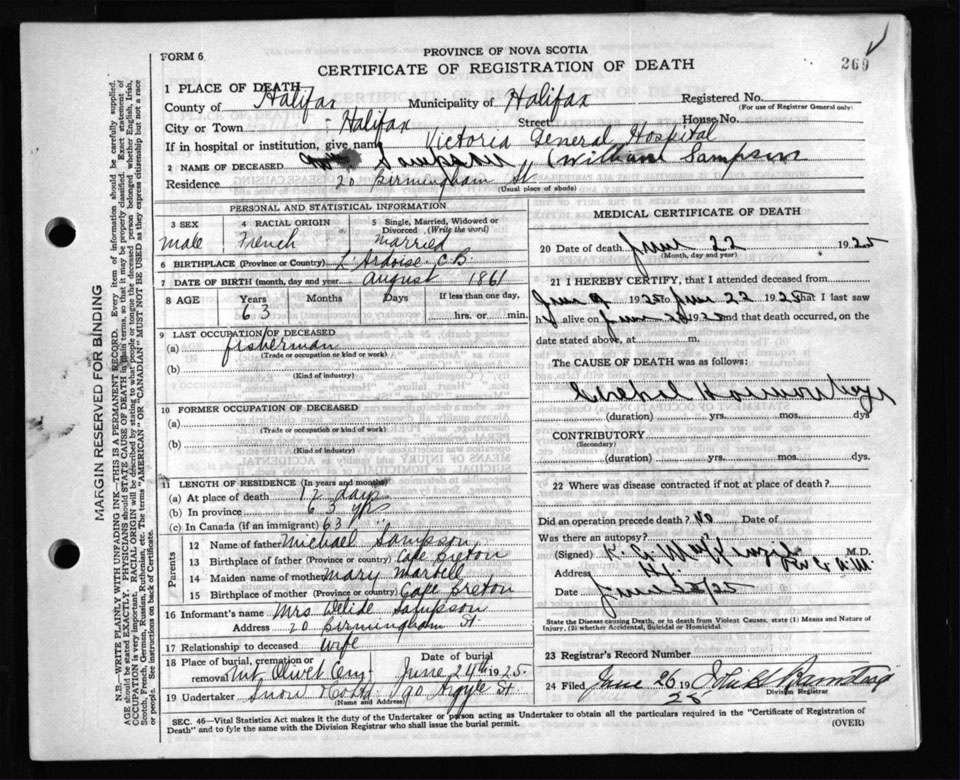 PROVINCE OF NOVA SCOTIA
FORM 6
CERTIFICATE OF REGISTRATION OF DEATH
269
1 PLACE OF DEATH
County of Halifax Municipality of Halifax Registered No.
(For use of Registrar General only)
City or Town Halifax Street House No.
If in hospital or institution, give name Victoria General Hospital
2 NAME OF DECEASED Sampson (William Sampson
Residence 20 Birmingham St
(Usual place of abode)
PERSONAL AND STATISTICAL INFORMATION
3 SEX 4 RACIAL ORIGIN 5 Single, Married, Widowed or Divorced (Write the word)
male French Married
6 BIRTHPLACE (Province or Country) L'Ardoise C.B.
7 DATE OF BIRTH (month, day and year) August 1861
8 AGE Years Months Days If less than one day,
63 hrs. or min.
9 LAST OCCUPATION OF DECEASED
(a) fisherman
(Trade or occupation or kind or work)
(b)
(Kind of industry)
10 FORMER OCCUPATION OF DECEASED
(a)
(Trade or occupation or kind or work)
(b)
(Kind of industry)
11 LENGTH OF RESIDENCE (In years and months)
(a) At place of death 12 days
(b) In province 63 yrs
(c) In Canada (if an immigrant) 63 "
Parents
12 Name of father Michael Sampson
13 Birthplace of father (Province or country) Cape Breton
14 Maiden name of mother Mary Martell
15 Birthplace of mother (Province or country) Cape Breton
16 Informant's name Mrs Sampson
Address 20 Birmingham St.
17 Relationship to deceased wife
18 Place of burial, cremation or removal Mt Olivet Cemy Date of burial June 24th 1925
19 Undertaker Snow 90 Argyle St
(Name and Address)
MEDICAL CERTIFICATE OF DEATH
20 Date of death June 22 1925
(Month, day and year)
21 I HEREBY CERTIFY, that I attended deceased from
June 9 1925 to June 22 1925 that I last saw
h alive on June 1925 and that death occurred, on the
date stated above, at m.
The CAUSE OF DEATH was as follows:
Cerebral Hemorrhage
(duration) yrs. mos. dys
CONTRIBUTORY
(Secondary)
(duration) yrs. mos. dys.
22 Where was disease contracted if not at place of death?
Did an operation precede death? No Date of
Was there an autopsy?
(Signed) K. G. MacKenzie M.D.
Address Hx
Date June 25
State the Disease causing Death, or in death from Violent Causes, state (1) Means and Nature of Injury, (2) whether Accidental, Suicidal or Homicidal.
23 Registrar's Record Number
24 Filed June 26 19
25
Division Registrar
SEC. 46—Vital Statistics Act makes it the duty of the Undertaker or person acting as Undertaker to obtain all the particulars required in the "Certificate of Registration of
Death" and to fyle the same with the Division Registrar who shall issue the burial permit.
(OVER)
MARGIN RESERVED FOR BINDING
N.B.—WRITE PLAINLY WITH UNFADING INK—THIS IS A PERMANENT RECORD. Every item of information should be carefully supplied.
AGE should be stated EXACTLY. PHYSICIANS should STATE CAUSE OF DEATH in plain terms, so that it may be properly classified. Exact statement of
OCCUPATION is very important. RACIAL ORIGIN will be described by stating to what people or tongue the deceased person belonged whether English, Irish,
Scotch, French, German, Russian, Ruthenian, etc. The terms "AMERICAN" OR "CANADIAN" MUST NOT BE USED as they express citizenship but not a race
or people. See instructions on back of Certificate.